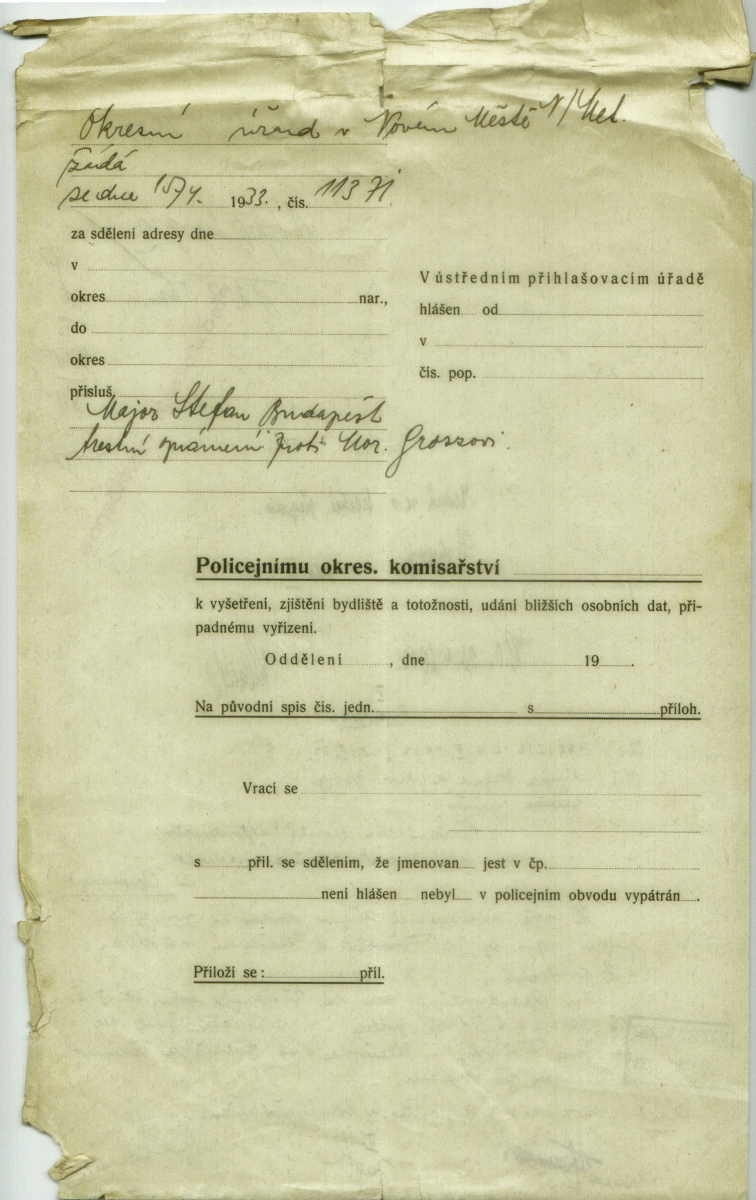 Okresní úřad v Novém Městě n/Met.
žádá
ze dne 15/4. 1933. , čís. 11371
za sdělení adresy dne
v
okres nar.,
do
okres
přísluš.
Major Stefan Budapešt
trestní oznámení proti Mor. Groszovi.
V ústředním přihlašovacím úřadě
hlášen od
v
čís. pop.
Policejnímu okres. komisařství
k vyšetření, zjištění bydliště a totožnosti, udání bližších osobních dat, pří-
padnému vyřízení.
Oddělení , dne 19 .
Na původní spis čís. jedn. s příloh.
Vrací se
s příl. se sdělením, že jmenovan jest v čp.
není hlášen nebyl v policejním obvodu vypátrán .
Přiloží se : příl.